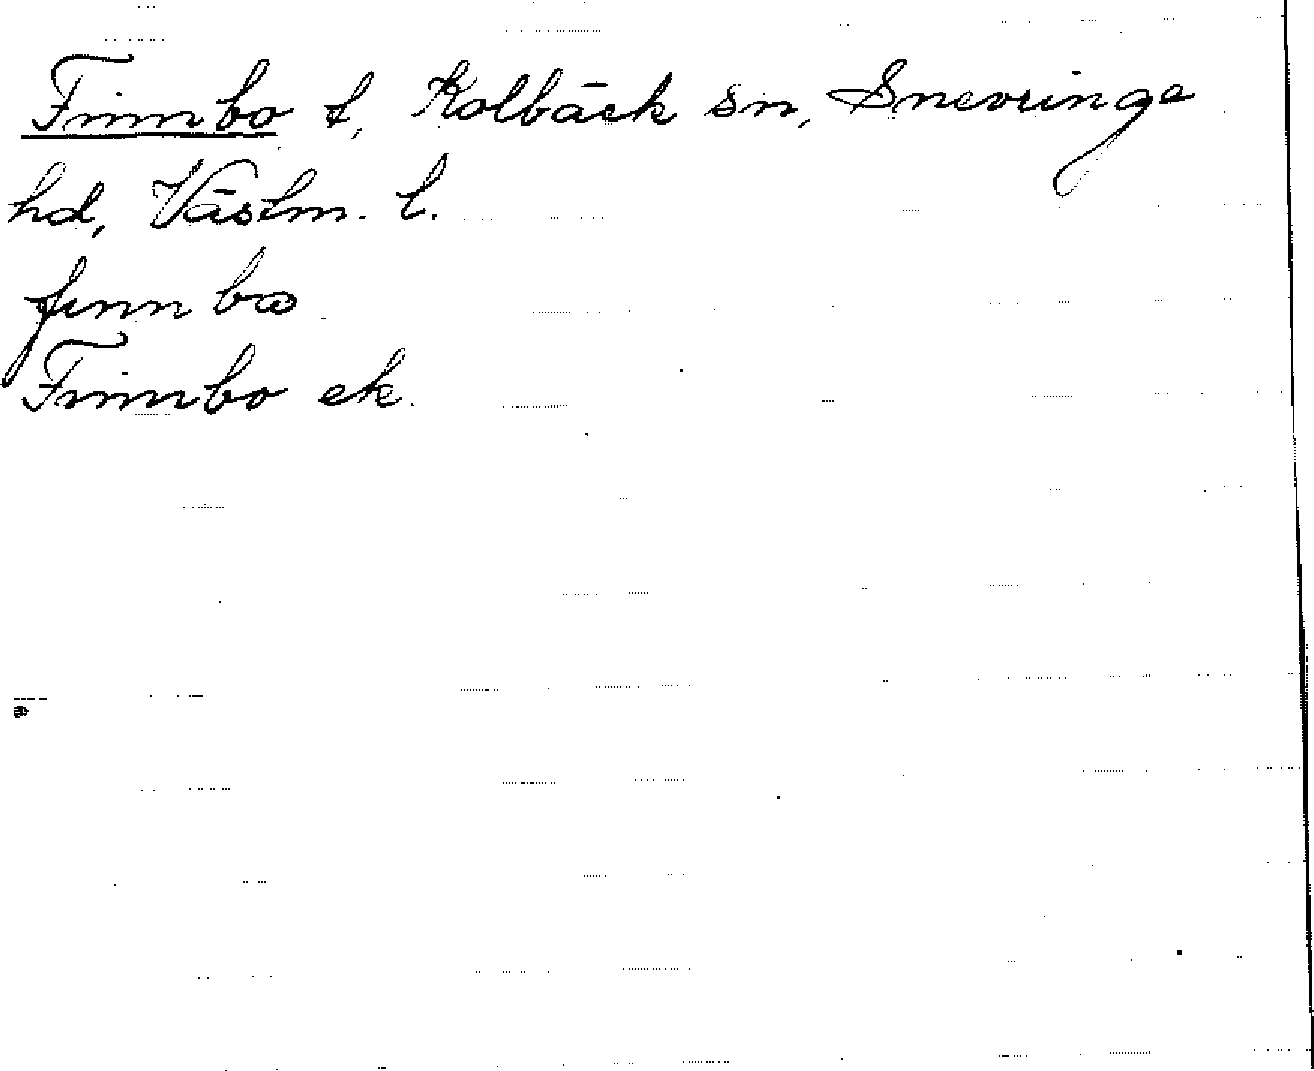 Finnbo t, Kolbäck sn, Snevringe
hd, Västm. l.
finnbω
Finnbo ek.